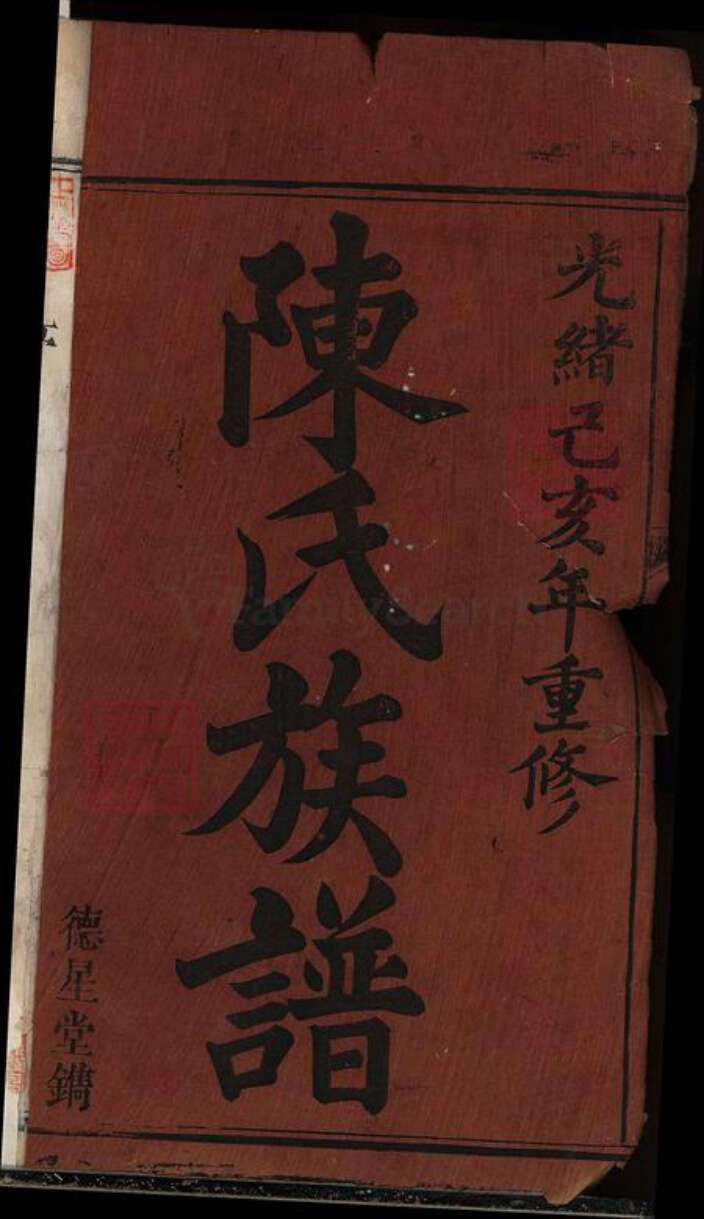 光緒己亥年重修
陳氏族譜
德星堂鐫